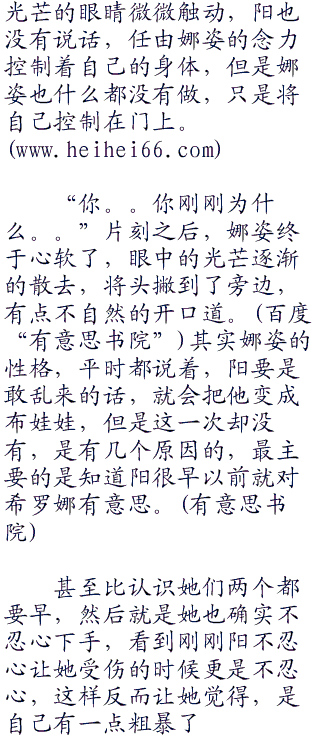 光芒的眼睛微微触动，阳也
没有说话，任由娜姿的念力
控制着自己的身体，但是娜
姿也什么都没有做，只是将
自己控制在门上。
(www.heihei66.com)
“你。。你刚刚为什
么。。”片刻之后，娜姿终
于心软了，眼中的光芒逐渐
的散去，将头撇到了旁边，
有点不自然的开口道。(百度
“有意思书院”)其实娜姿的
性格，平时都说着，阳要是
敢乱来的话，就会把他变成
布娃娃，但是这一次却没
有，是有几个原因的，最主
要的是知道阳很早以前就对
希罗娜有意思。(有意思书
院)
甚至比认识她们两个都
要早，然后就是她也确实不
忍心下手，看到刚刚阳不忍
心让她受伤的时候更是不忍
心，这样反而让她觉得，是
自己有一点粗暴了